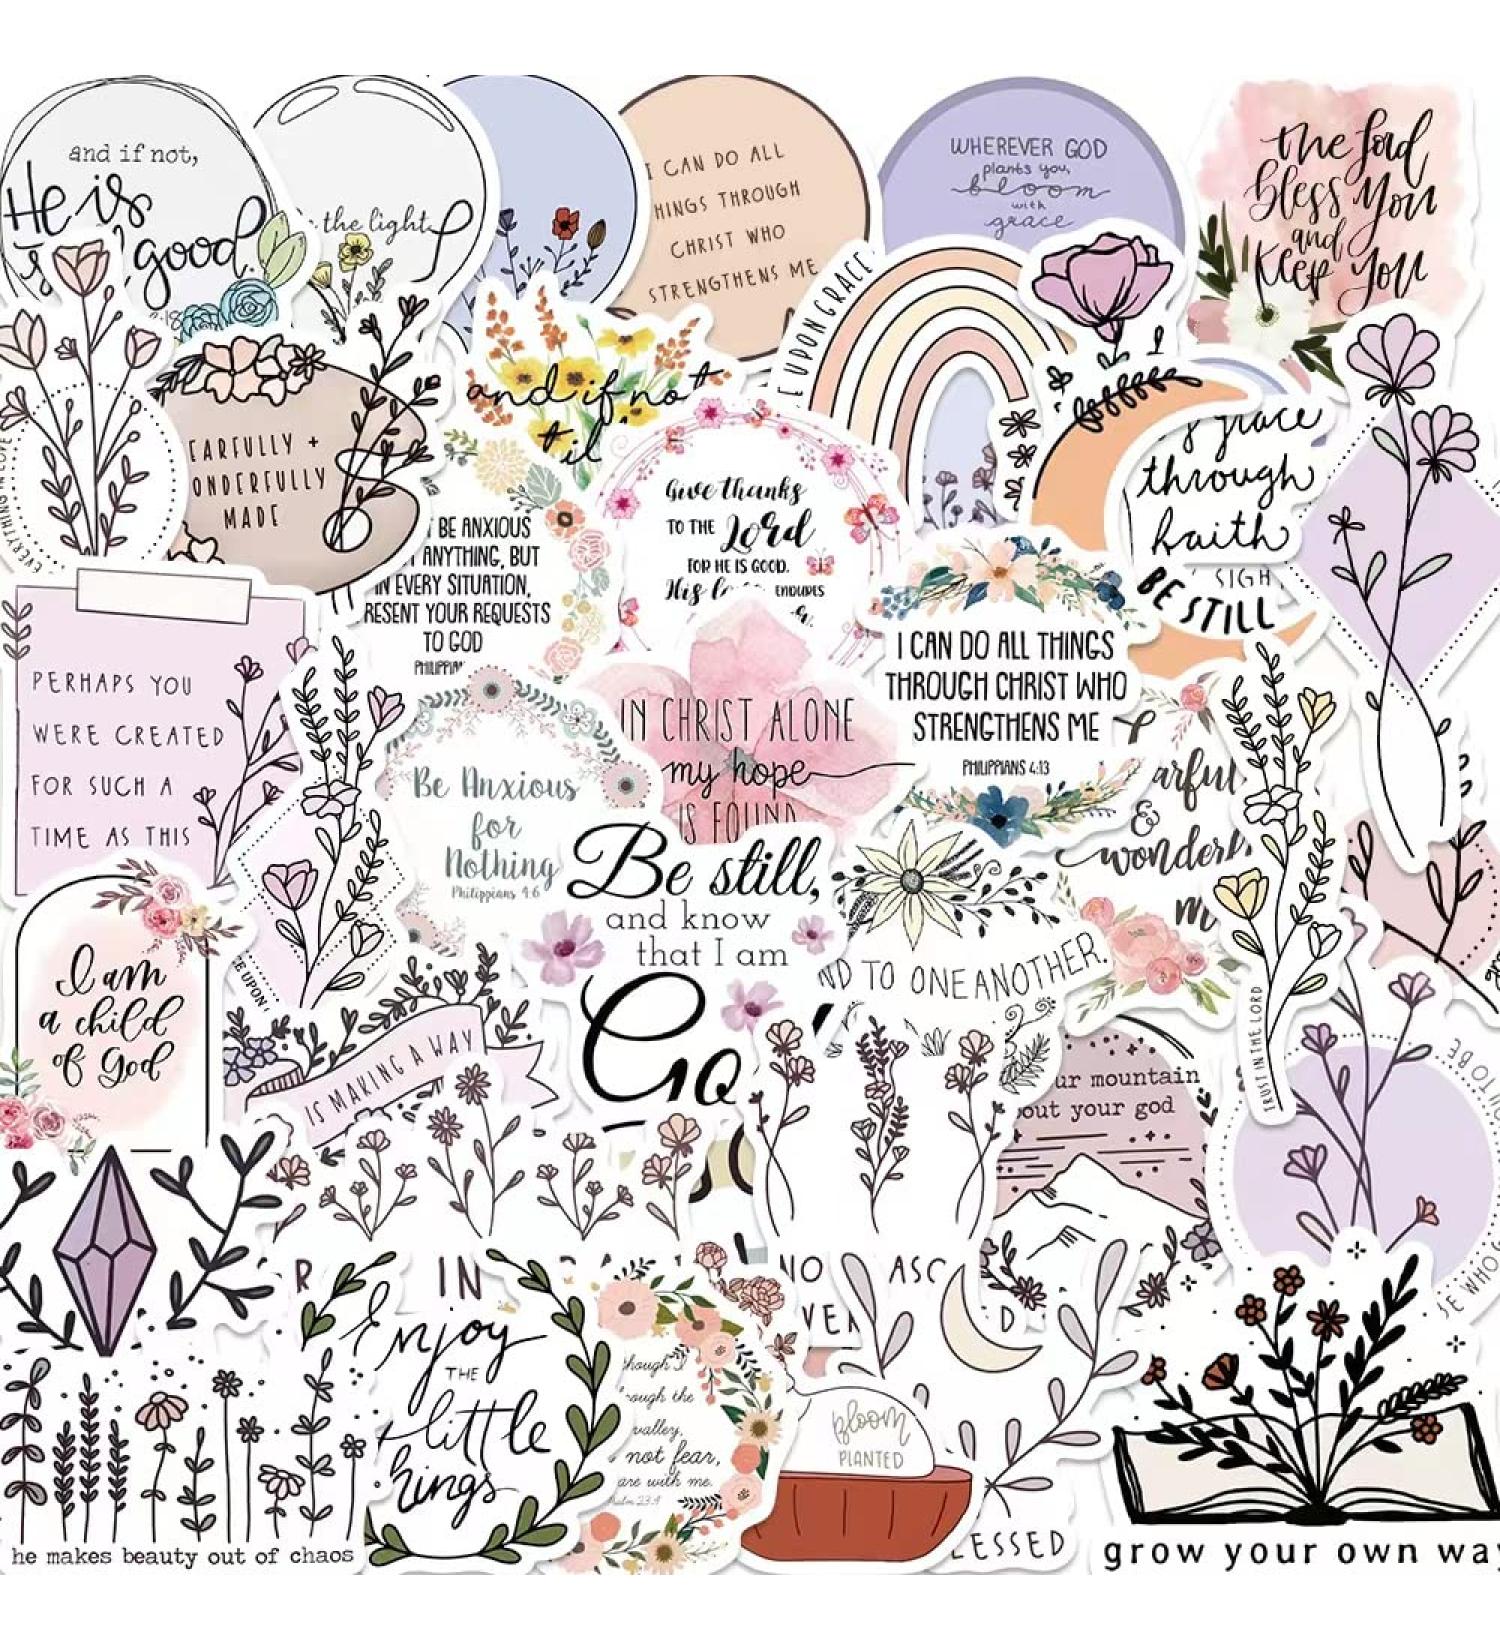 and if not,
He is
good.
the light
I CAN DO ALL
HINGS THROUGH
CHRIST WHO
STRENGTHENS ME
WHEREVER GOD
plants you,
bloom
with
grace
the Lord
bless you
and
keep you
E UPON GRACE
EARFULLY +
ONDERFULLY
MADE
EVERYTHING IN LOVE
and if not
BE ANXIOUS
ANYTHING, BUT
IN EVERY SITUATION,
RESENT YOUR REQUESTS
TO GOD
PHILIPPIAN
Give thanks
TO THE Lord
FOR HE IS GOOD.
His lo ENDURES
grace
through
faith
SIGH
BE STILL
I CAN DO ALL THINGS
THROUGH CHRIST WHO
STRENGTHENS ME
PHILIPPIANS 4:13
PERHAPS YOU
WERE CREATED
FOR SUCH A
TIME AS THIS
IN CHRIST ALONE
my hope
IS FOUND
Be Anxious
for
Nothing
Philippians 4:6
arful
&
wonder
m
Be still,
and know
that I am
Go
ND TO ONE ANOTHER.
I am
a child
of God
CE UPON
IS MAKING A WAY
TRUST IN THE LORD
ur mountain
out your god
OU TO BE
SE WHO G
R
IN
NO
ASC
VER
D
Enjoy
THE
little
hings
hough I
rough the
valley,
not fear,
are with me.
Psalm 23:4
bloom
PLANTED
LESSED
he makes beauty out of chaos
grow your own way